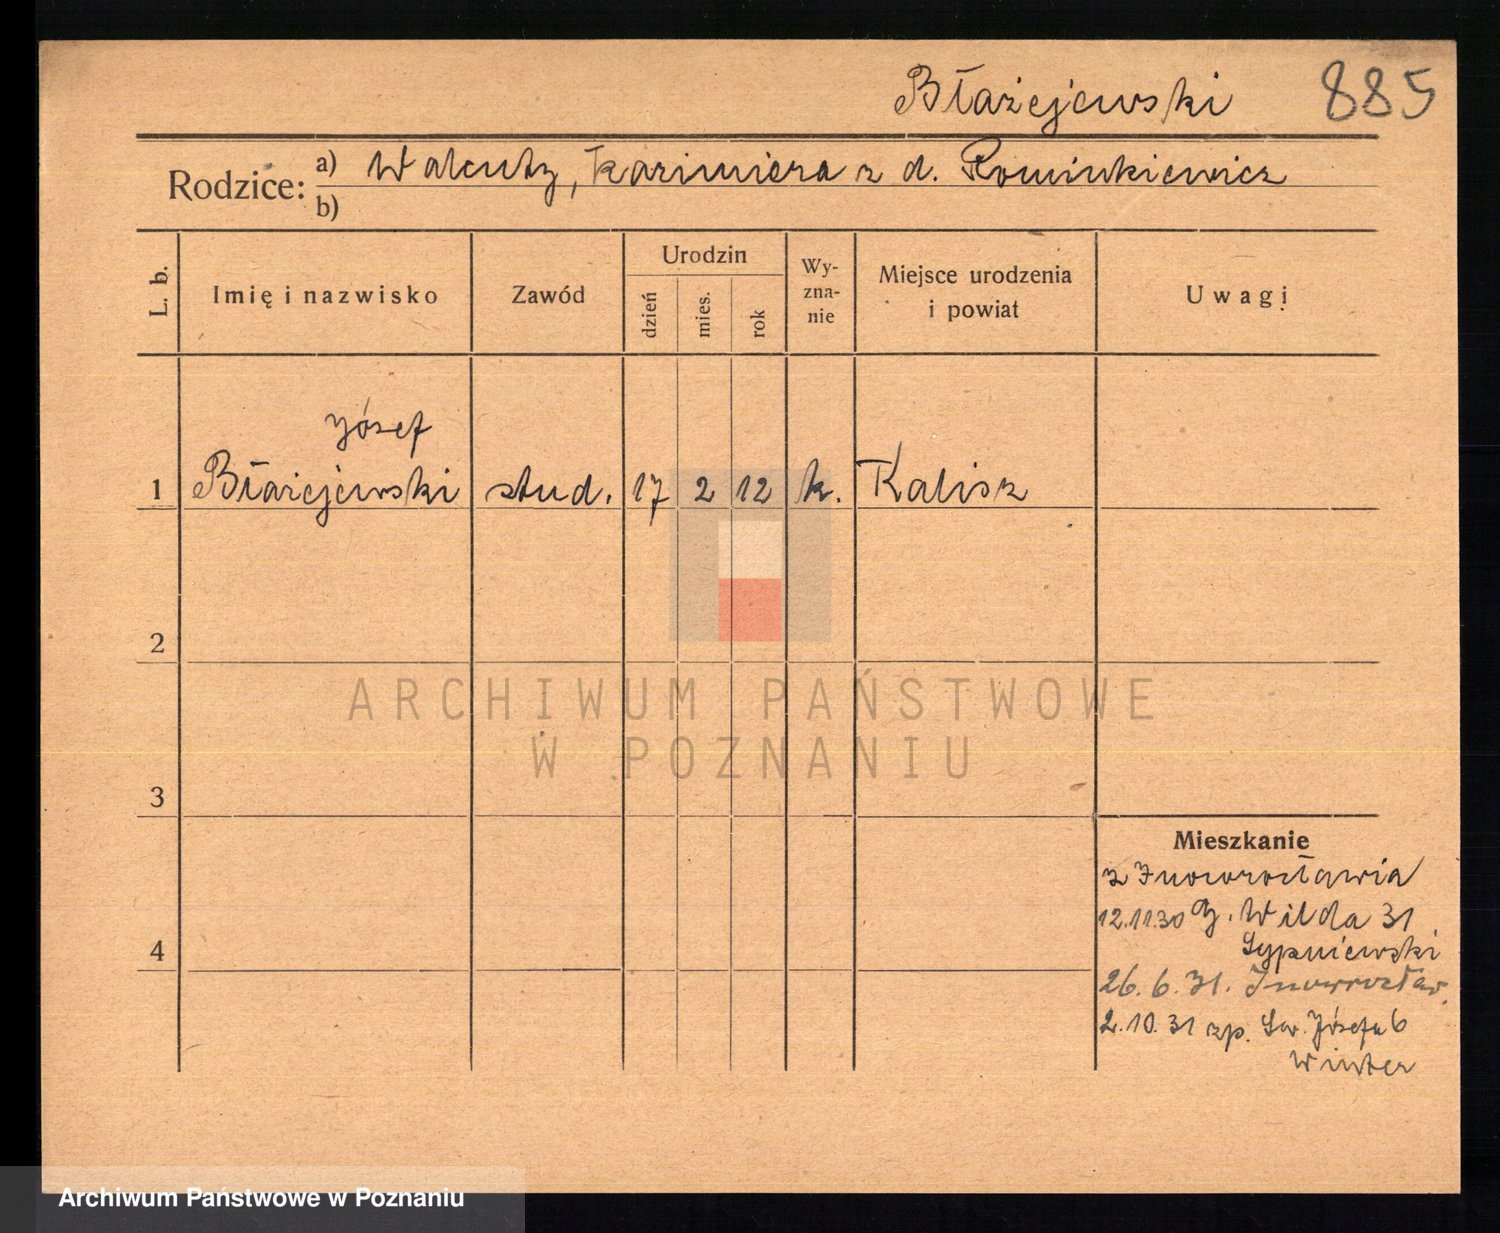 Błażejewski 885
Rodzice: a) Walenty, Kazimiera z d. Rominkiewicz
b)
L. b. Imię i nazwisko Zawód Urodzin dzień mies. rok Wy-zna-nie Miejsce urodzenia i powiat Uwagi
Józef
1 Błażejewski stud. 17 2 12 k. Kalisz
2
ARCHIWUM PAŃSTWOWE
W POZNANIU
3
Mieszkanie
z Inowrocławia
12.11.30 G. Wilda 31
4 Sypniewski
26.6.31. Inowrocław
2.10.31 zp. Św. Józefa 6
Winter
Archiwum Państwowe w Poznaniu